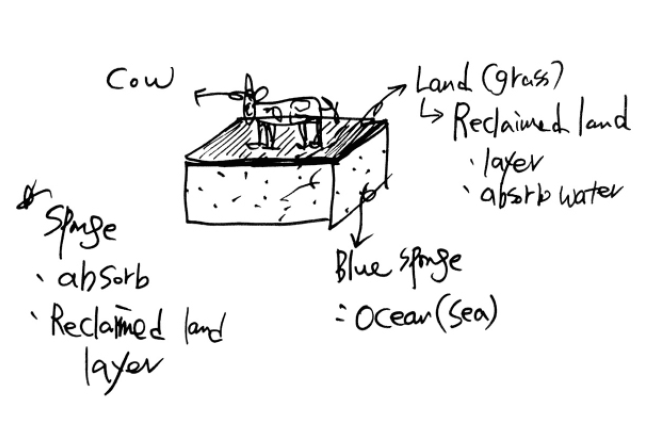 Cow
Land (grass)
↳ Reclaimed land
· layer
· absorb water
Sponge
· absorb
· Reclaimed land
layer
Blue sponge
= Ocean (Sea)